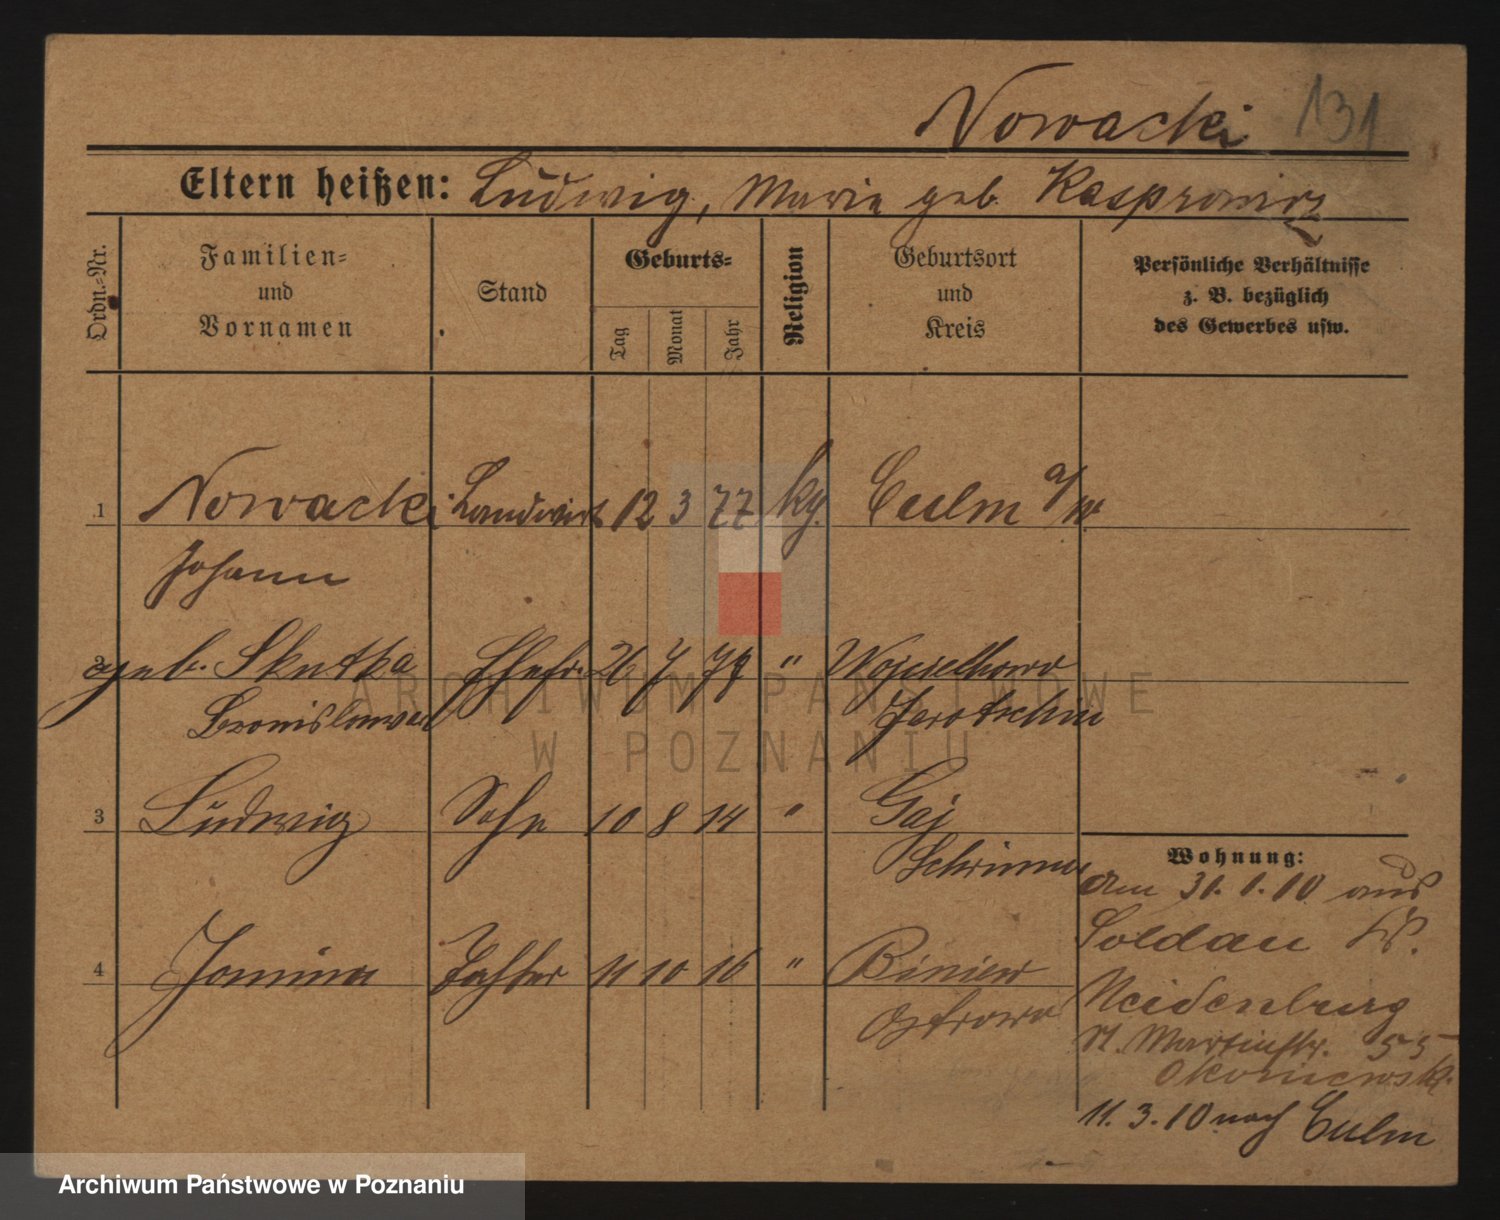 Nowacki 131
Eltern heißen: Ludwig, Marie geb. Kasprowicz
Ordn.-Nr.
Familien-
und
Vornamen
Stand
Geburts-
Tag
Monat
Jahr
Religion
Geburtsort
und
Kreis
Persönliche Verhältnisse
z. B. bezüglich
des Gewerbes usw.
1 Nowacki Landwirt 12 3 77 kg. Culm a/W
Johann
2 geb. Skutka Ehefr. 26 7 79 "
Bronislawa Jarotschin
3 Ludwig Sohn 10 8 14 " Gaj
Schrimm
4 Janina Tochter 11 10 16 " Biniew
Ostrowo
Wohnung:
am 31.1.10 aus
Soldau
Neidenburg
St. Martinstr. 55
Okoniewski
11.3.10 nach Culm
ARCHIWUM PAŃSTWOWE
W POZNANIU
Archiwum Państwowe w Poznaniu